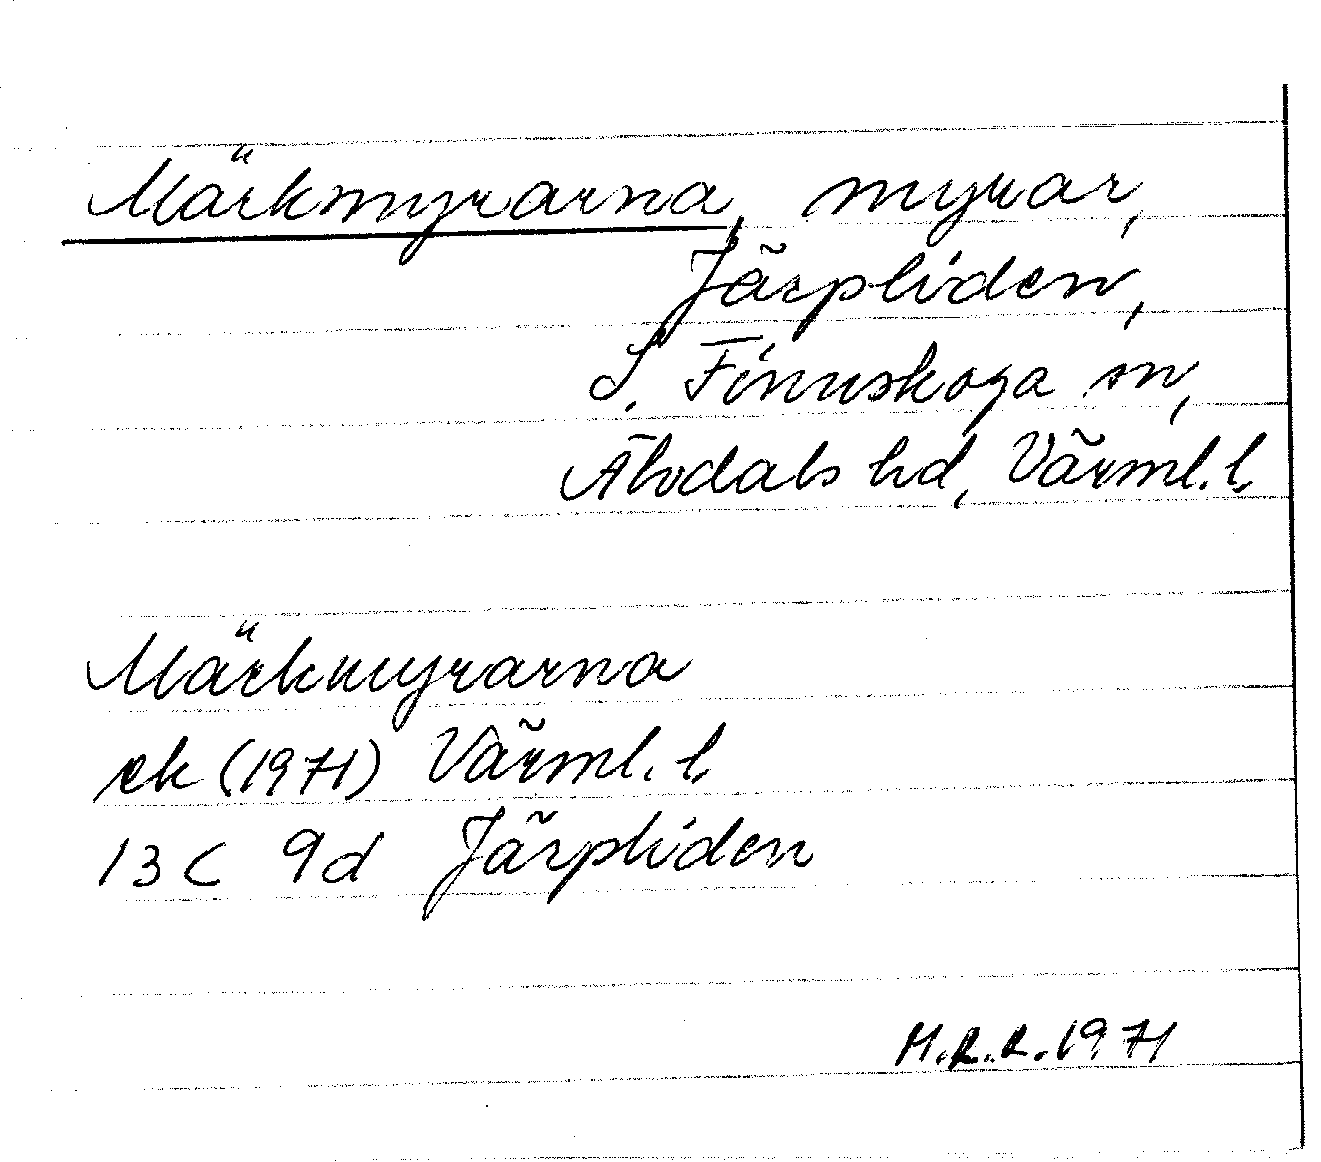 Märkmyrarna, myrar,
Järpliden,
S. Finnskoga sn,
Älvdals hd, Värml. l.
Märkmyrarna
ek (1971) Värml. l.
13C 9d Järpliden
M.R.R. 1971